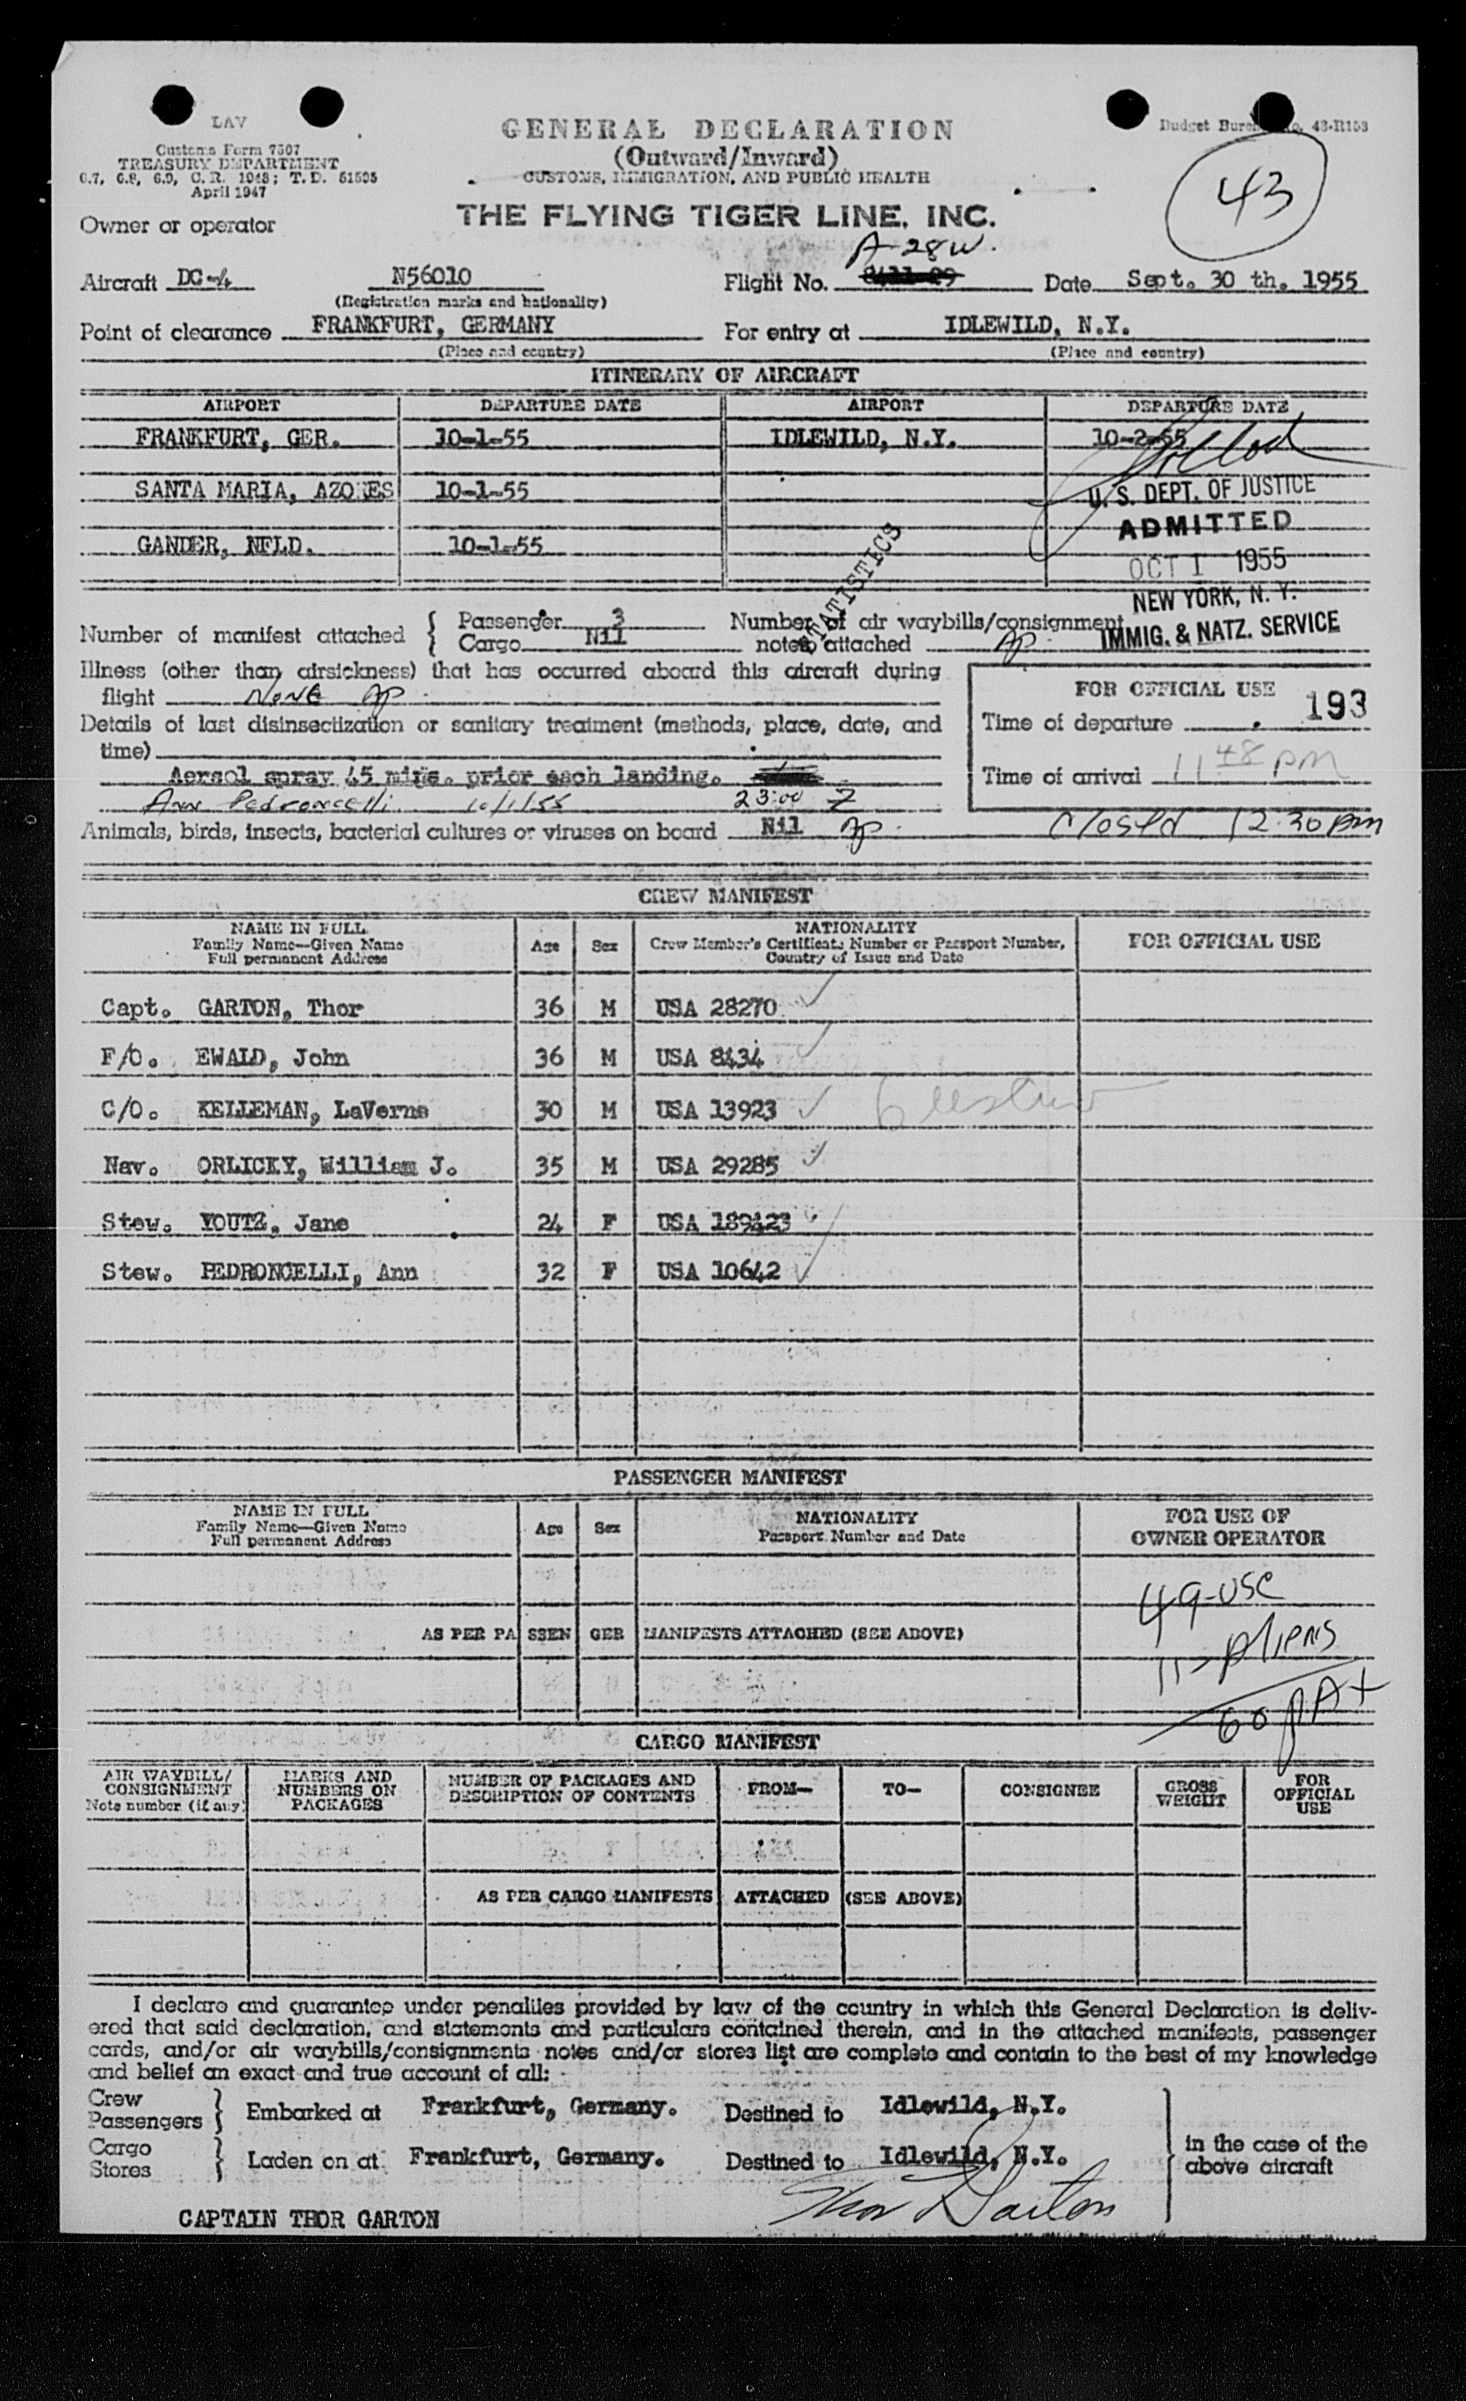 LAV
Customs Form 7507
TREASURY DEPARTMENT
6.7, 6.8, 6.9, C.R. 1948; T.D. 51595
April 1947
GENERAL DECLARATION
(Outward/Inward)
CUSTOMS, IMMIGRATION, AND PUBLIC HEALTH
Budget Bureau No. 43-R153
43
Owner or operator THE FLYING TIGER LINE, INC.
A-28W.
Aircraft DC-4 N56010 Flight No. Date Sept. 30 th. 1955
(Registration marks and nationality)
Point of clearance FRANKFURT, GERMANY For entry at IDLEWILD, N.Y.
(Place and country) (Place and country)
ITINERARY OF AIRCRAFT
AIRPORT DEPARTURE DATE AIRPORT DEPARTURE DATE
FRANKFURT, GER. 10-1-55 IDLEWILD, N.Y. 10-2-55
SANTA MARIA, AZORES 10-1-55
GANDER, NFLD. 10-1-55
U. S. DEPT. OF JUSTICE
ADMITTED
OCT 1 1955
NEW YORK, N. Y.
IMMIG. & NATZ. SERVICE
STATISTICS
Number of manifest attached { Passenger 3 Number of air waybills/consignment
Cargo Nil notes attached AP
Illness (other than airsickness) that has occurred aboard this aircraft during
flight NONE AP
Details of last disinsectization or sanitary treatment (methods, place, date, and
time)
Aersol spray 45 mins. prior each landing.
Ann Pedroncelli 10/1/55 23:00 Z
Animals, birds, insects, bacterial cultures or viruses on board Nil AP
FOR OFFICIAL USE 193
Time of departure
Time of arrival 11 48 pm
Closed 12.30 pm
CREW MANIFEST
NAME IN FULL
Family Name—Given Name
Full permanent Address
Age Sex
NATIONALITY
Crew Member's Certificate Number or Passport Number,
Country of Issue and Date
FOR OFFICIAL USE
Capt. GARTON, Thor 36 M USA 28270
F/O. EWALD, John 36 M USA 8434
C/O. KELLEMAN, LaVerne 30 M USA 13923
Nav. ORLICKY, William J. 35 M USA 29285
Stew. YOUTZ, Jane 24 F USA 189423
Stew. PEDRONCELLI, Ann 32 F USA 10642
PASSENGER MANIFEST
NAME IN FULL
Family Name—Given Name
Full permanent Address
Age Sex
NATIONALITY
Passport Number and Date
FOR USE OF
OWNER OPERATOR
AS PER PASSENGER MANIFESTS ATTACHED (SEE ABOVE)
49-USC
11-Aliens
60 PAX
CARGO MANIFEST
AIR WAYBILL/
CONSIGNMENT
Note number (if any)
MARKS AND
NUMBERS ON
PACKAGES
NUMBER OF PACKAGES AND
DESCRIPTION OF CONTENTS
FROM— TO— CONSIGNEE
GROSS
WEIGHT
FOR
OFFICIAL
USE
AS PER CARGO MANIFESTS ATTACHED (SEE ABOVE)
I declare and guarantee under penalties provided by law of the country in which this General Declaration is deliv-
ered that said declaration, and statements and particulars contained therein, and in the attached manifests, passenger
cards, and/or air waybills/consignments notes and/or stores list are complete and contain to the best of my knowledge
and belief an exact and true account of all:
Crew
Passengers } Embarked at Frankfurt, Germany. Destined to Idlewild, N.Y.
Cargo
Stores } Laden on at Frankfurt, Germany. Destined to Idlewild, N.Y.
in the case of the
above aircraft
Thor Garton
CAPTAIN THOR GARTON